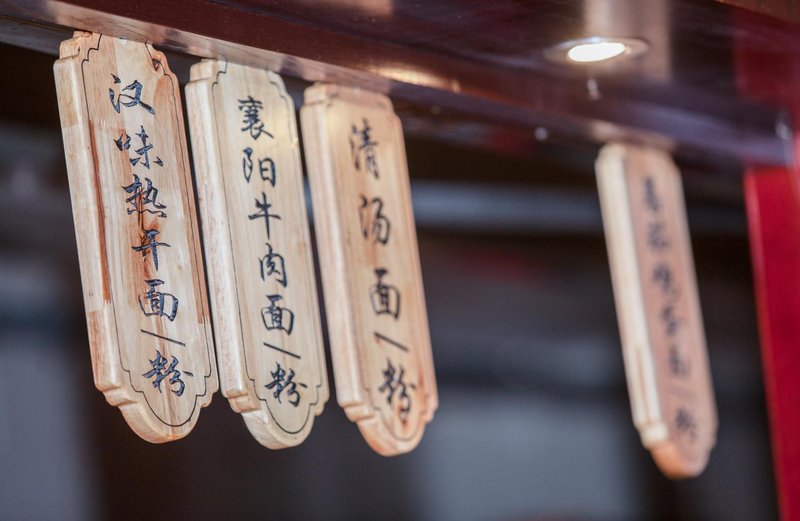 汉味热干面/粉
襄阳牛肉面/粉
清汤面/粉